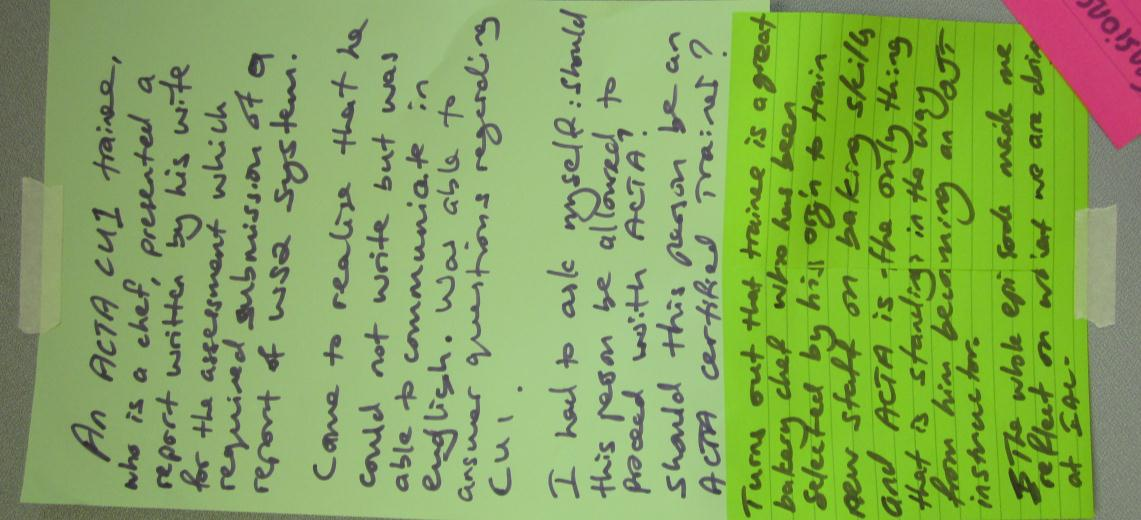 An ACTA CU1 trainee,
who is a chef, presented a
report written by his wife
for the assessment which
required submission of a
report of WSQ system.
Came to realise that he
could not write but was
able to communicate in
english. Was able to
answer questions regarding
CU1.
I had to ask myself: should
this person be allowed to
proceed with ACTA?
Should this person be an
ACTA certified trainer?
Turns out that trainee is a great
bakery chef who has been
selected by his orgn to train
new staff on baking skills
and ACTA is the only thing
that is standing in the way
from him becoming an OJT
instructor.
The whole episode made me
reflect on what we are doing
at IAL.